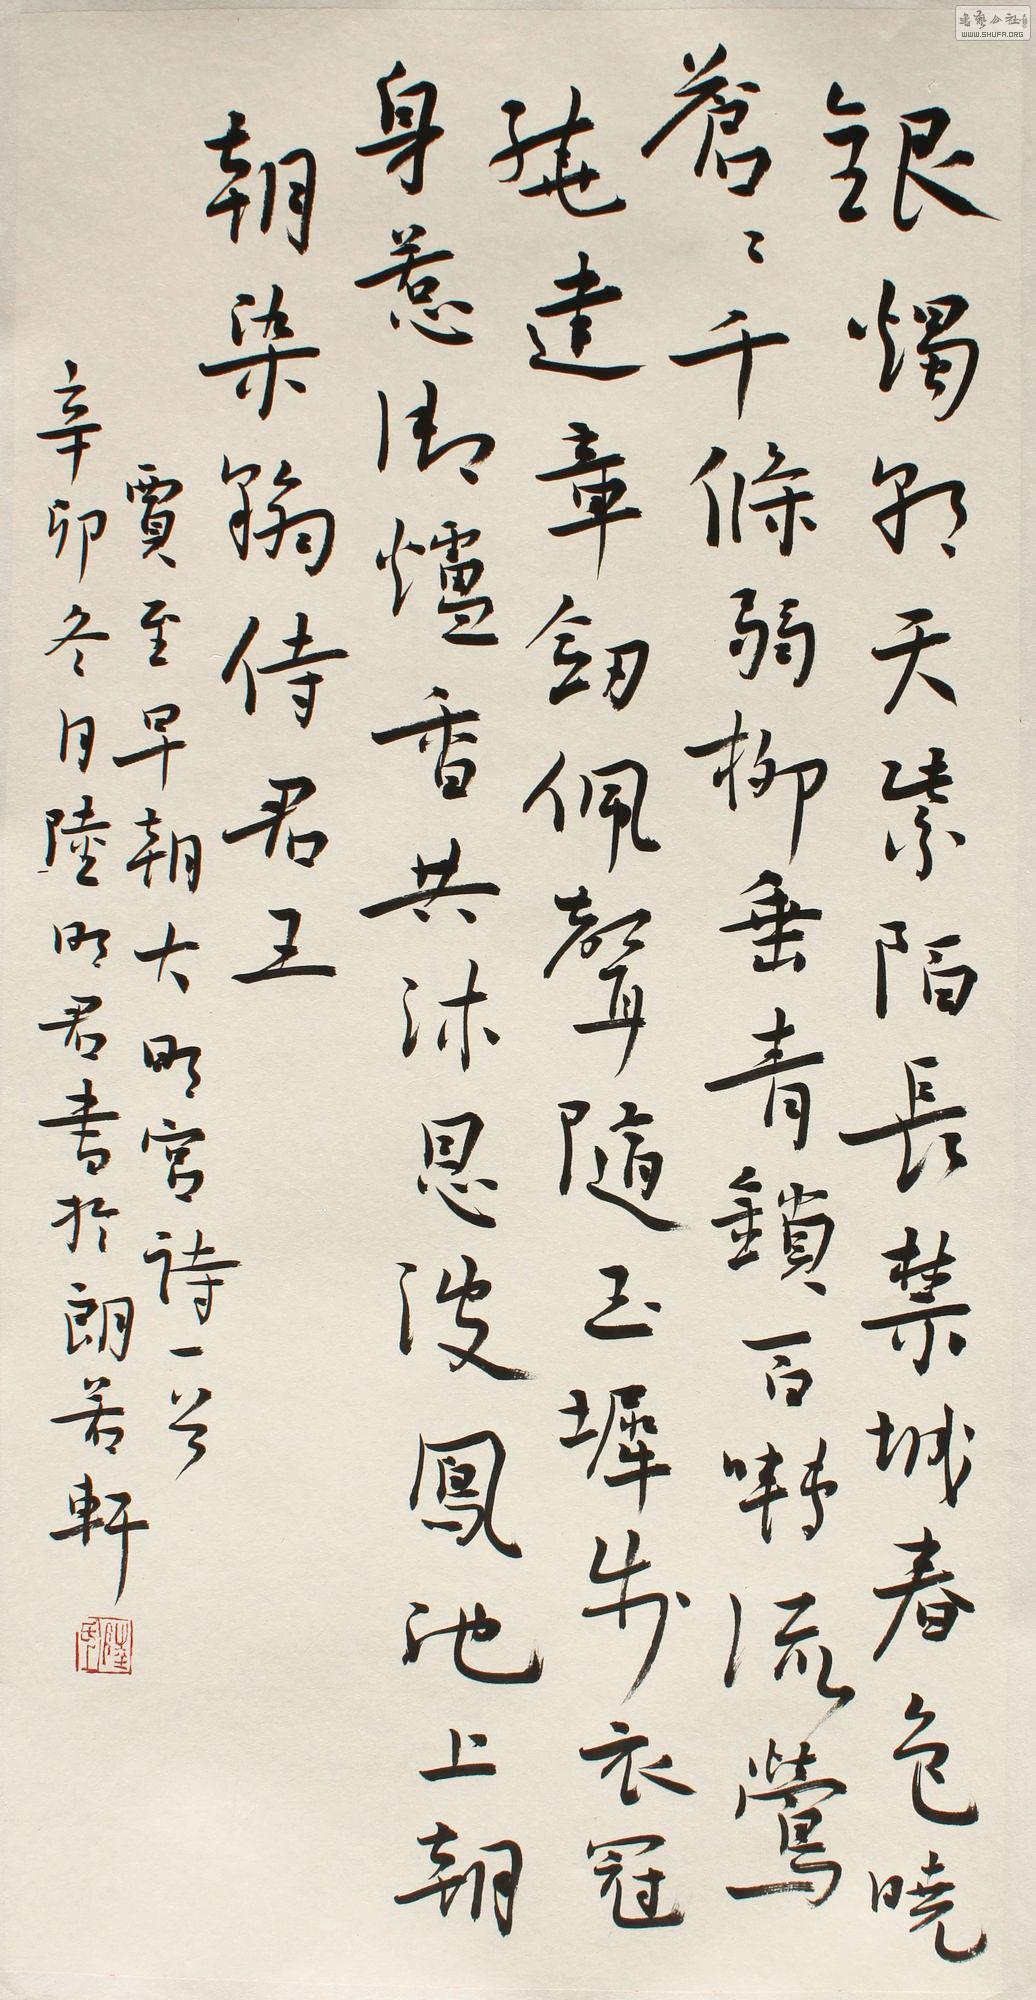 銀燭朝天紫陌長禁城春色曉
蒼〻千條弱柳垂青鎖百囀流鶯
繞建章劍佩聲隨玉墀步衣冠
身惹御爐香共沐恩波鳳池上朝
朝染翰侍君王
賈至早朝大明宮詩一首
辛卯冬月陸明君書於朗若軒
WWW.SHUFA.ORG